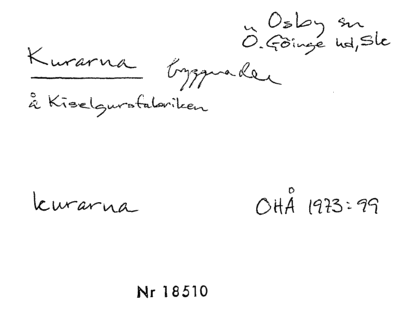 Osby sn
Ö. Göinge hd, Sk
Kurarna byggnader
å Kiselgursfabriken
kurarna OHÅ 1973:99
Nr 18510